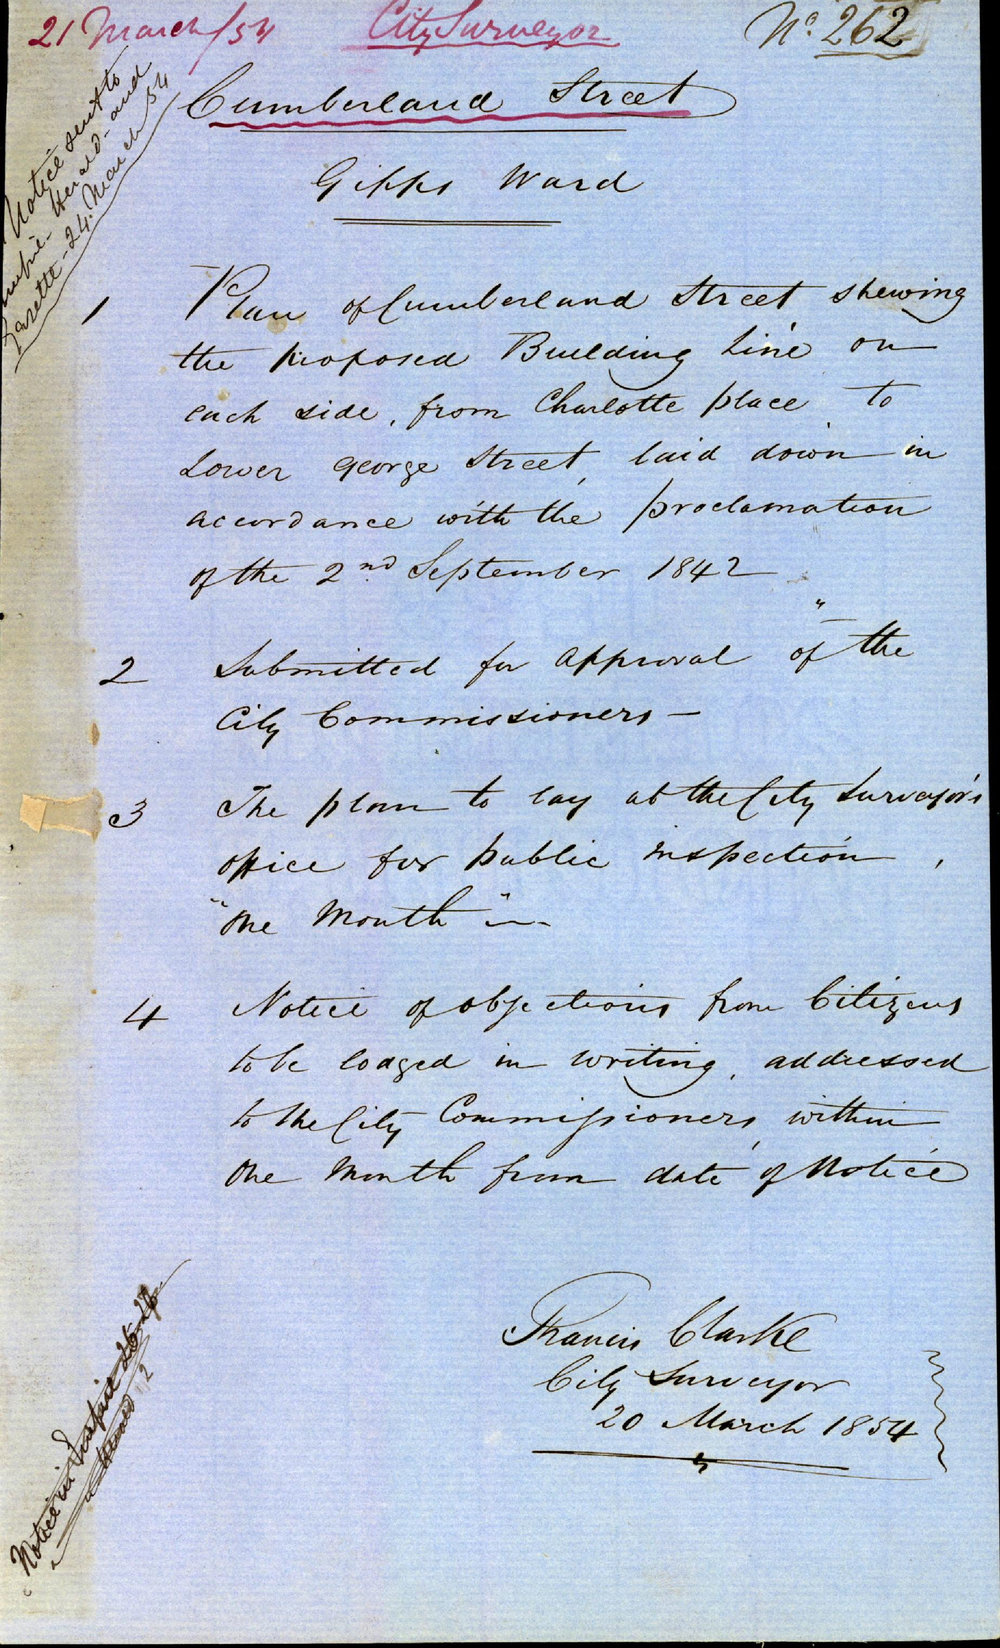 21 March/54 City Surveyor No. 262
Cumberland Street
Gipps Ward
Notice sent to
Empire - Herald - and
Gazette - 24. March 54
1 Plan of Cumberland Street shewing
the proposed Building Line on
each side, from Charlotte place to
Lower George Street, laid down in
accordance with the proclamation
of the 2nd September 1842
2 Submitted for approval " of the
City Commissioners -
3 The plan to lay at the City Surveyor's
office for public inspection,
"one Month" -
4 Notice of objections from Citizens
to be lodged in writing, addressed
to the City Commissioners, within
one Month from date of Notice
Francis Clarke
City Surveyor
20 March 1854
Notice in Empire 26-